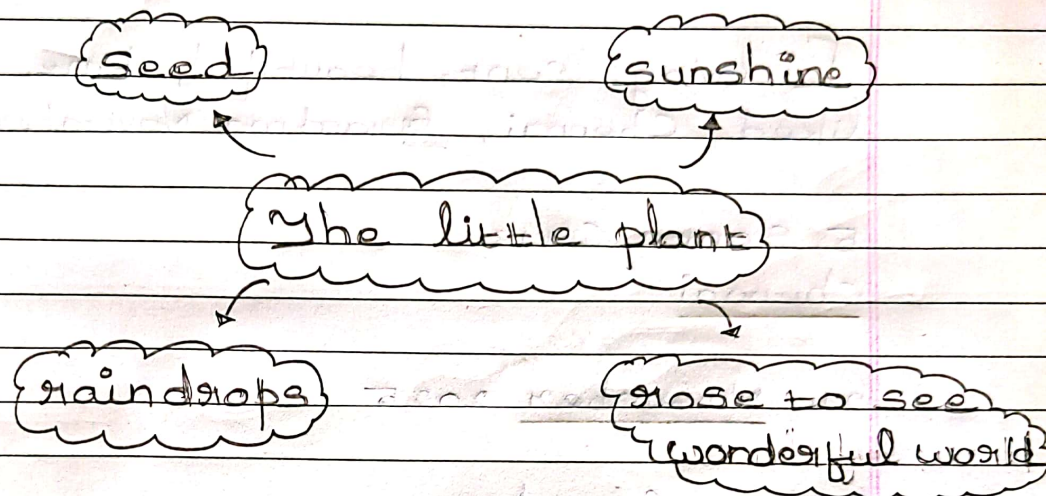 seed
sunshine
The little plant
raindrops
rose to see
wonderful world